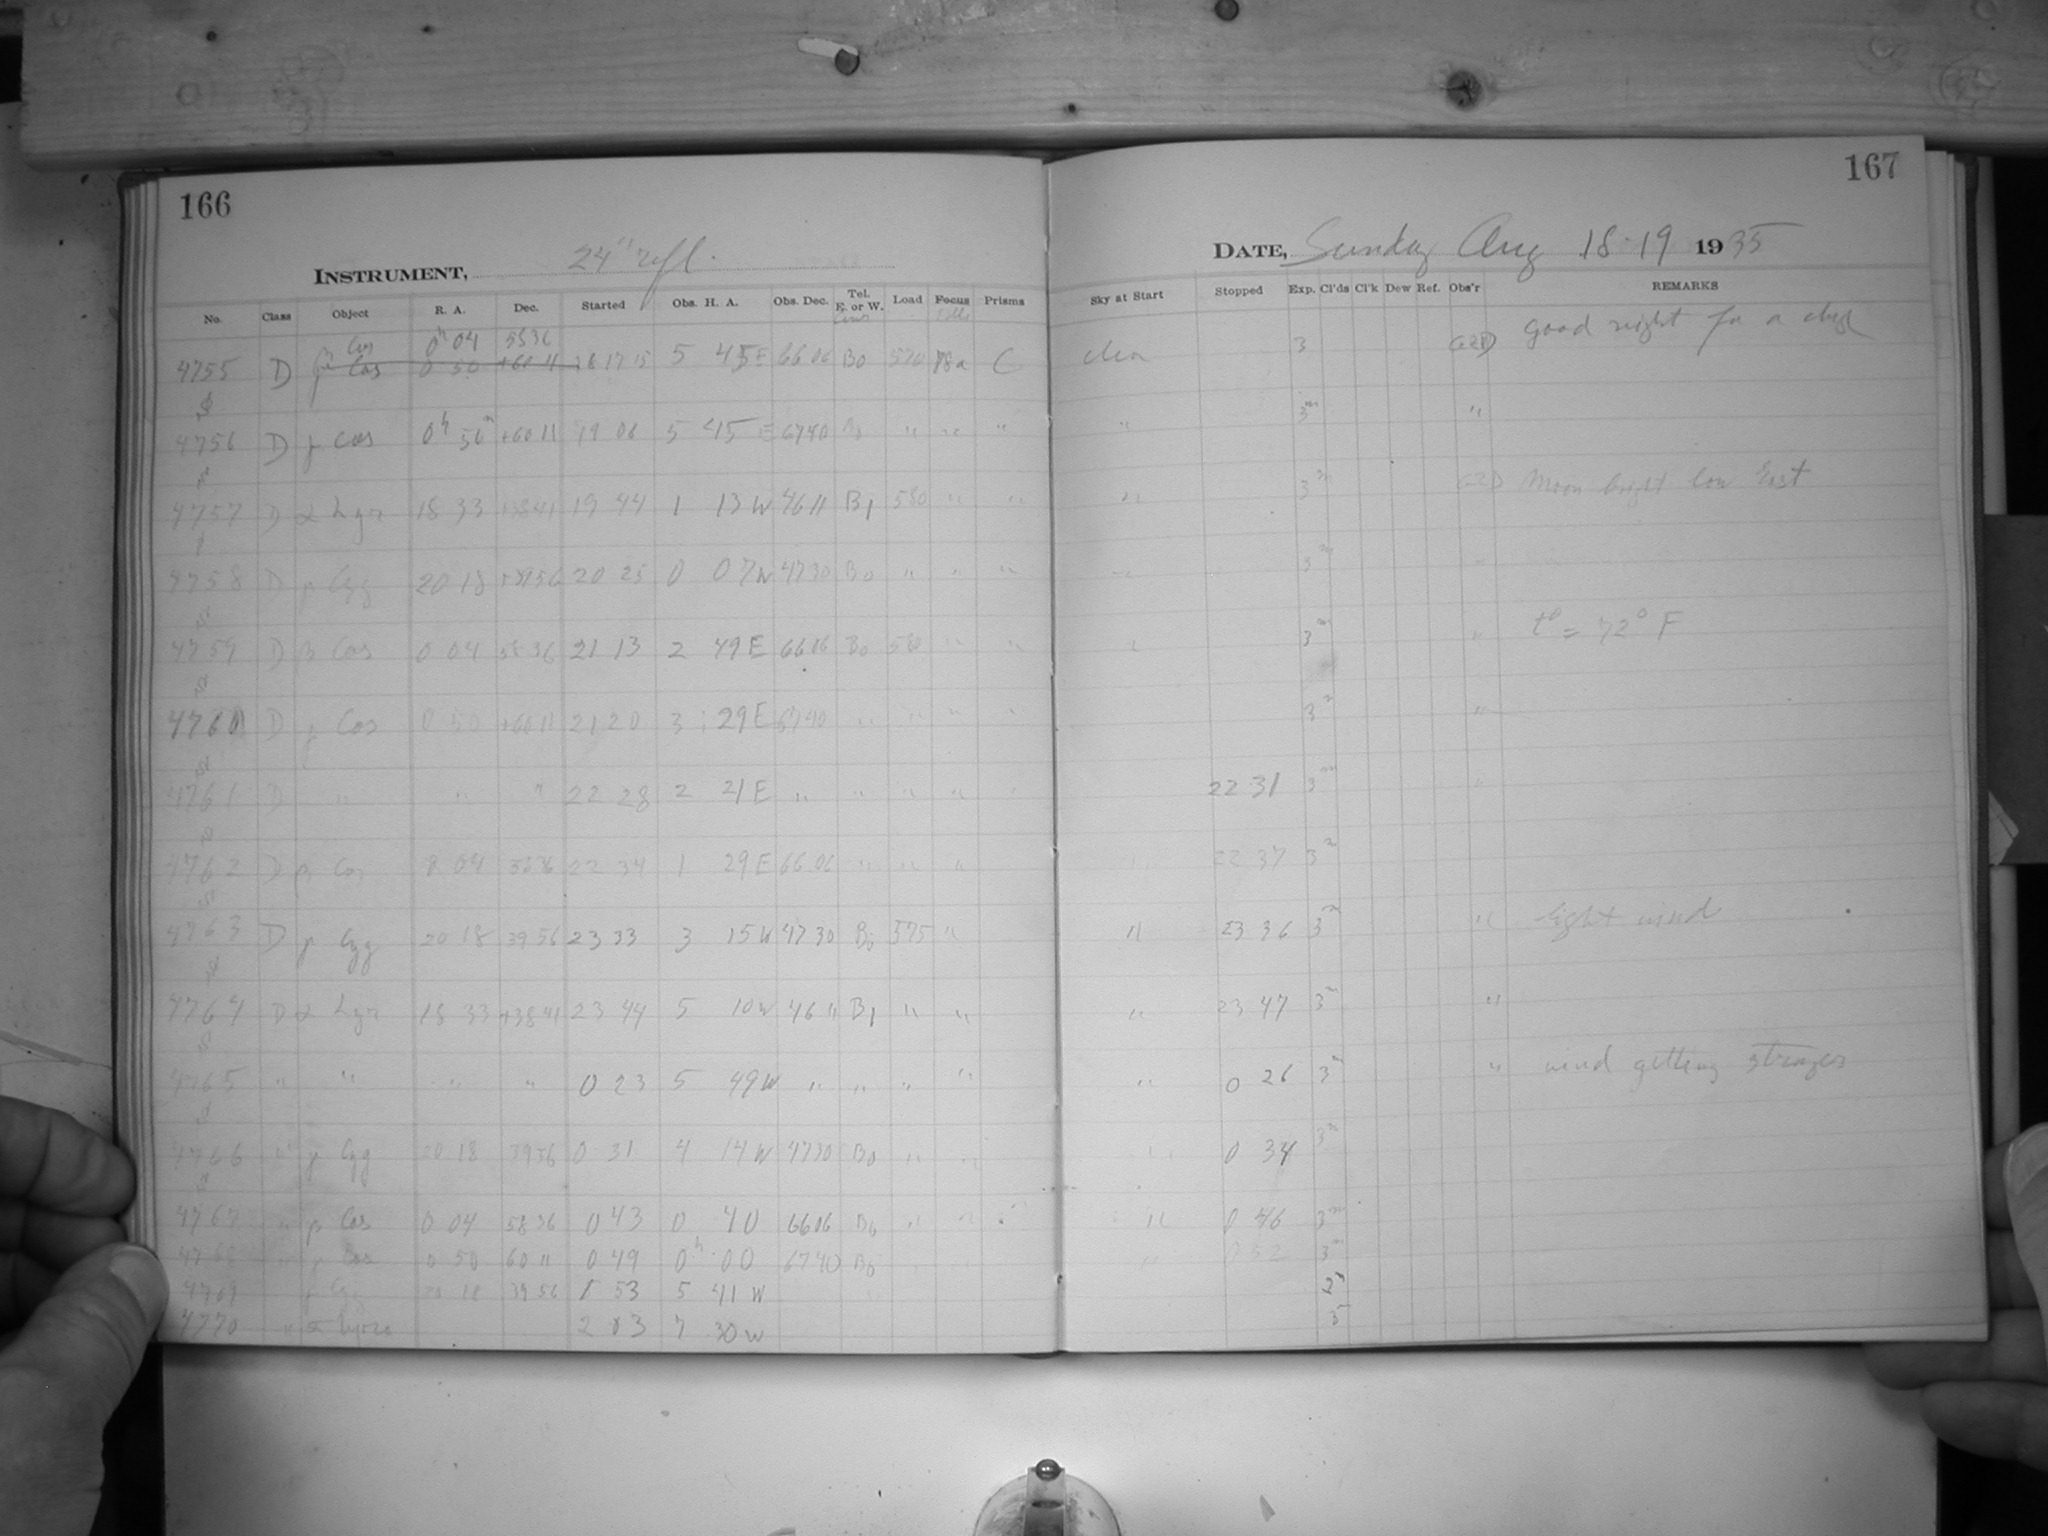 166
INSTRUMENT, 24" refl.
No. Class Object R. A. Dec. Started Obs. H. A. Obs. Dec. Tel. E. or W. Load Focus Prisms
β Cas 0h 04 5836
4755 D γ Cas 0 50 +60 11 18 17 15 5 45 E 66 06 B0 570 C
4756 D γ Cas 0h 50m +60 11 19 06 5 45 E 6740 B0 " " "
4757 D α Lyr 18 33 +3841 19 44 1 13 W 46 11 B1 580 " "
4758 D γ Cyg 20 18 +3956 20 25 0 07 W 4730 B0 " " "
4759 D β Cas 0 04 58 36 21 13 2 49 E 66 06 B0 580 " "
4760 D γ Cas 0 50 +60 11 21 20 3 29 E 6740 " " " "
4761 D " " " 22 28 2 21 E " " " "
4762 D β Cas 0 04 5836 22 34 1 29 E 66 06 " " "
4763 D γ Cyg 20 18 39 56 23 33 3 15 W 47 30 B0 575 "
4764 D α Lyr 18 33 +38 41 23 44 5 10 W 46 11 B1 " "
4765 " " " " 0 23 5 49 W " " " "
4766 " γ Cyg 20 18 3956 0 31 4 14 W 4730 B0 " "
4767 " β Cas 0 04 58 36 0 43 0 40 6606 B0 " "
4768 " γ Cas 0 50 60 11 0 49 0h 00 6740 B0
4769 " γ Cyg 20 18 39 56 1 53 5 41 W
4770 " α Lyrae 2 03 7 30 W
167
DATE, Sunday Aug 18-19 1935
Sky at Start Stopped Exp. Cl'ds Cl'k Dew Ref. Obs'r REMARKS
clear 3 good night for a change
" 3m "
" 3m Moon bright low East
" 3m "
" 3m " t° = 72° F
3m "
22 31 3m "
22 37 3m
" 23 36 3m " light wind
" 23 47 3m "
" 0 26 3m " wind getting stronger
" 0 34 3m
" 0 46 3m
" 0 52 3m